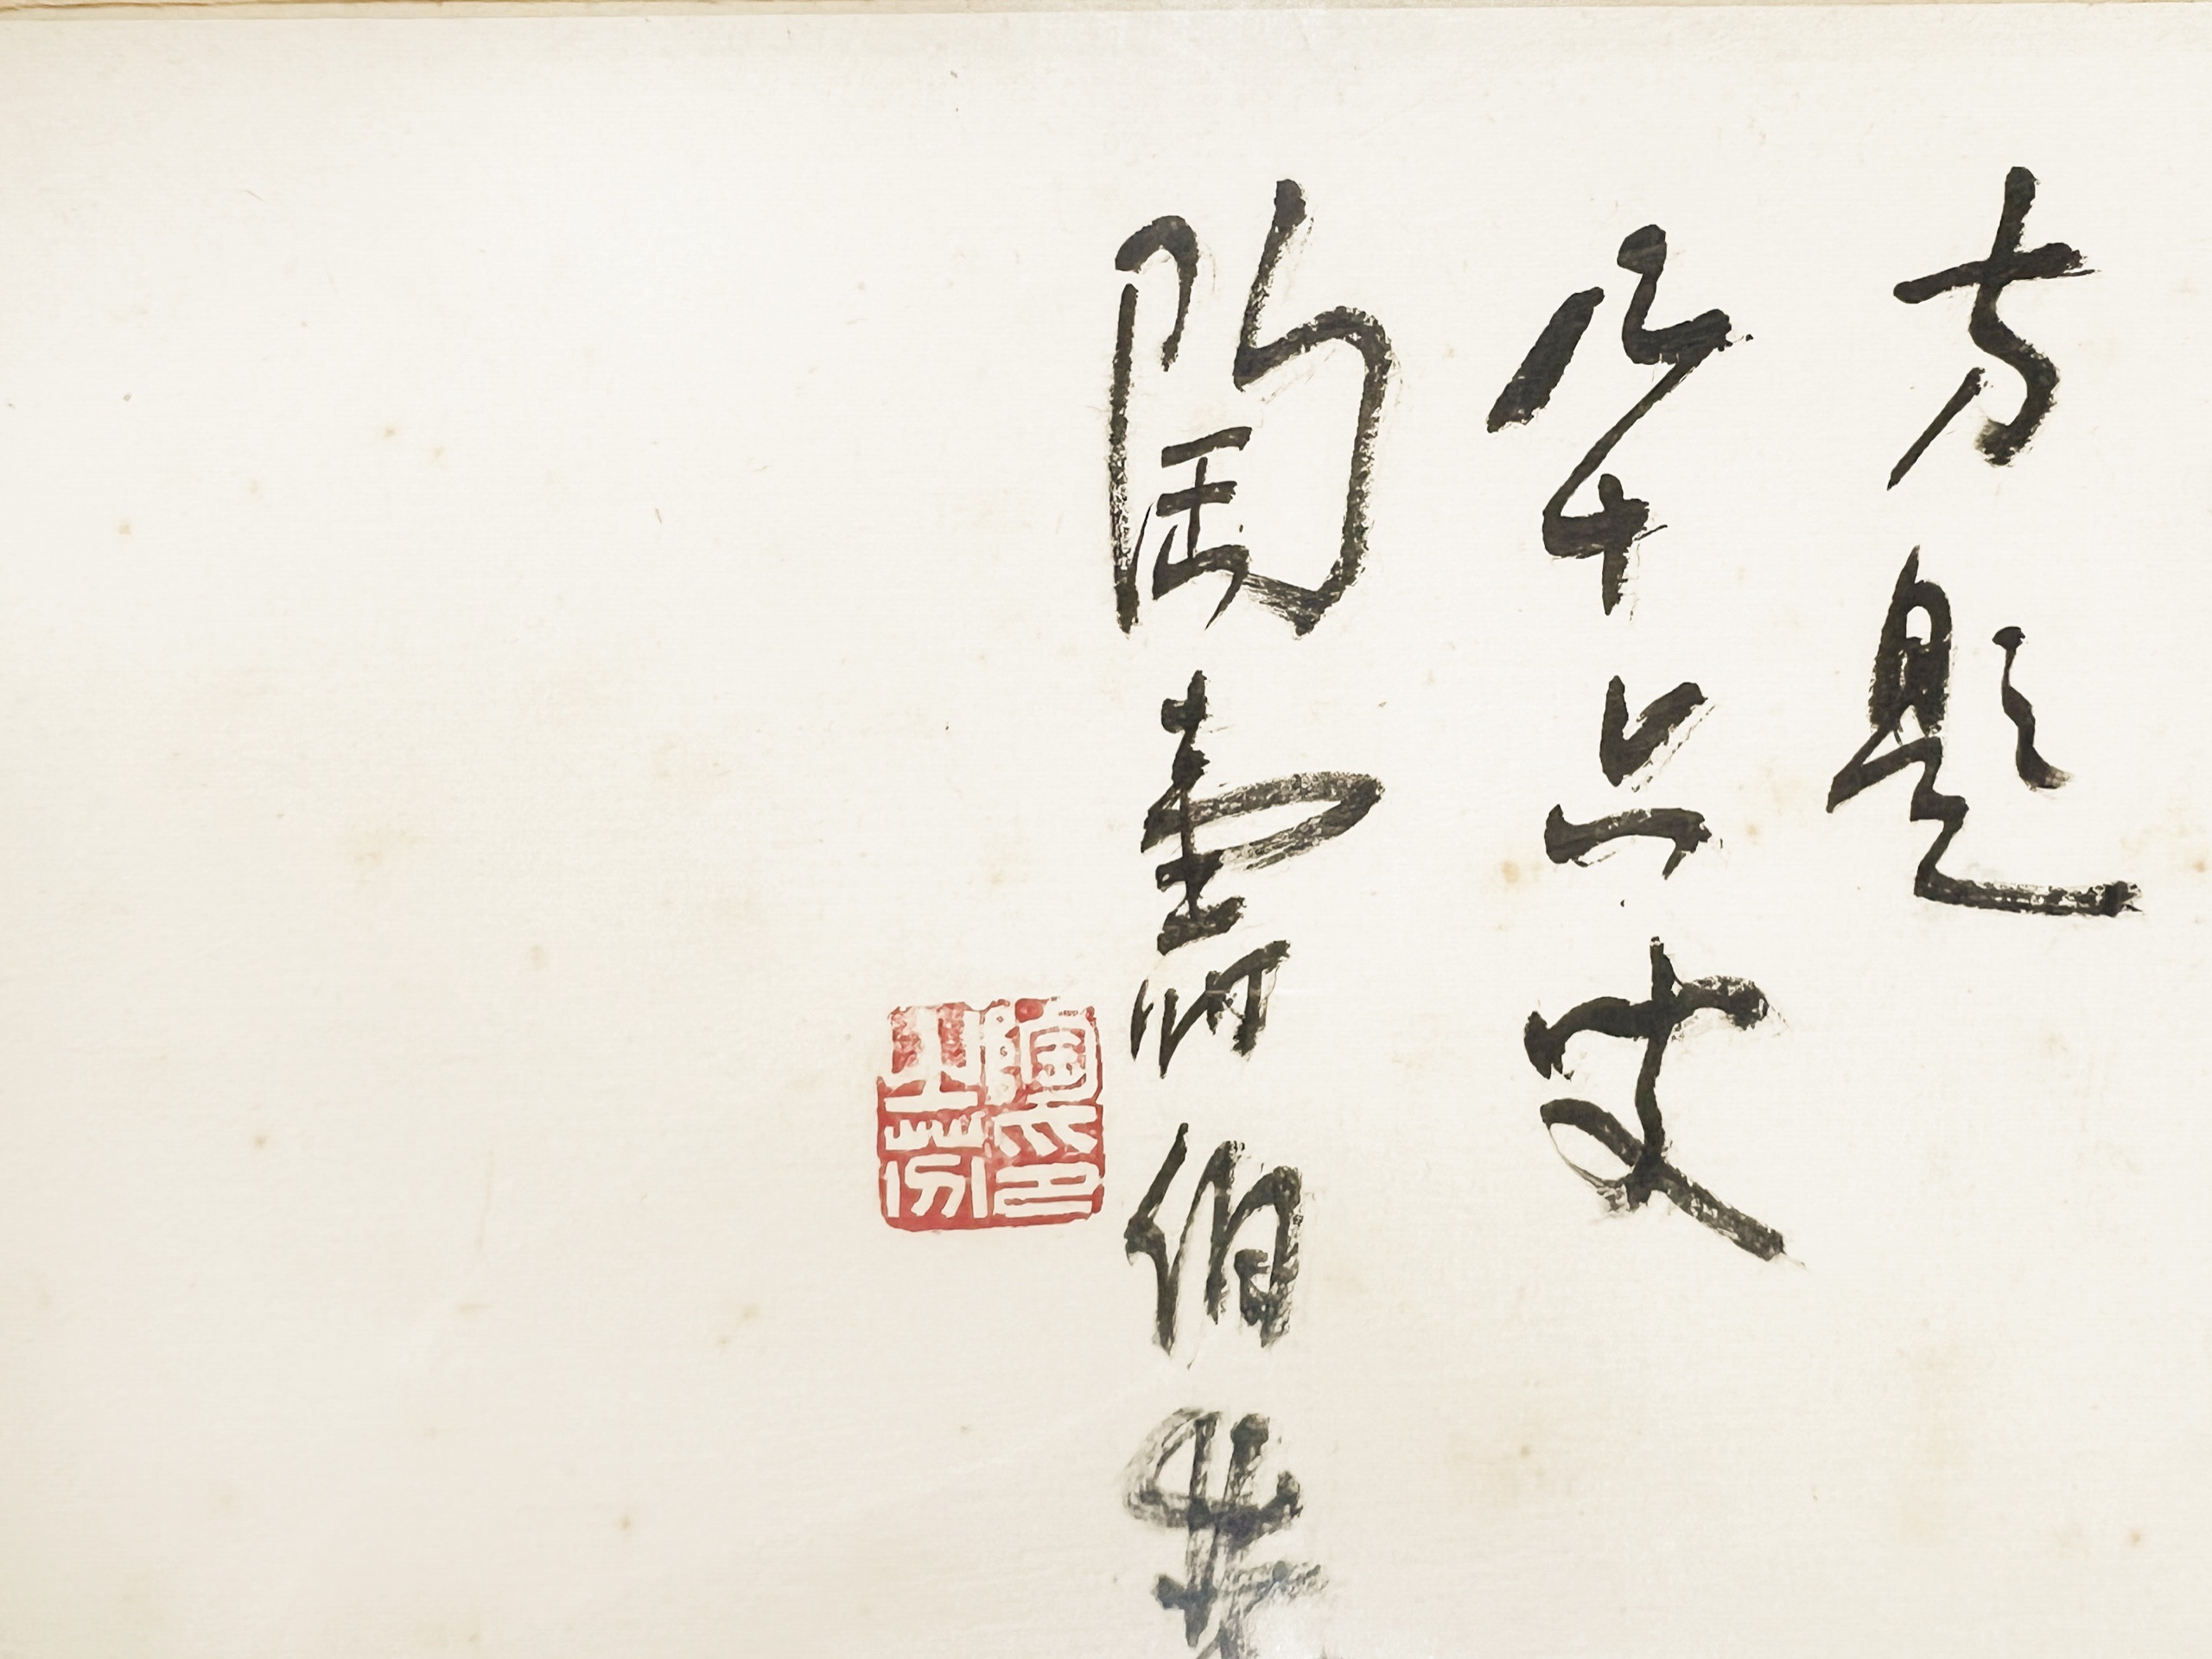 方題
八十六叟
陶壽伯